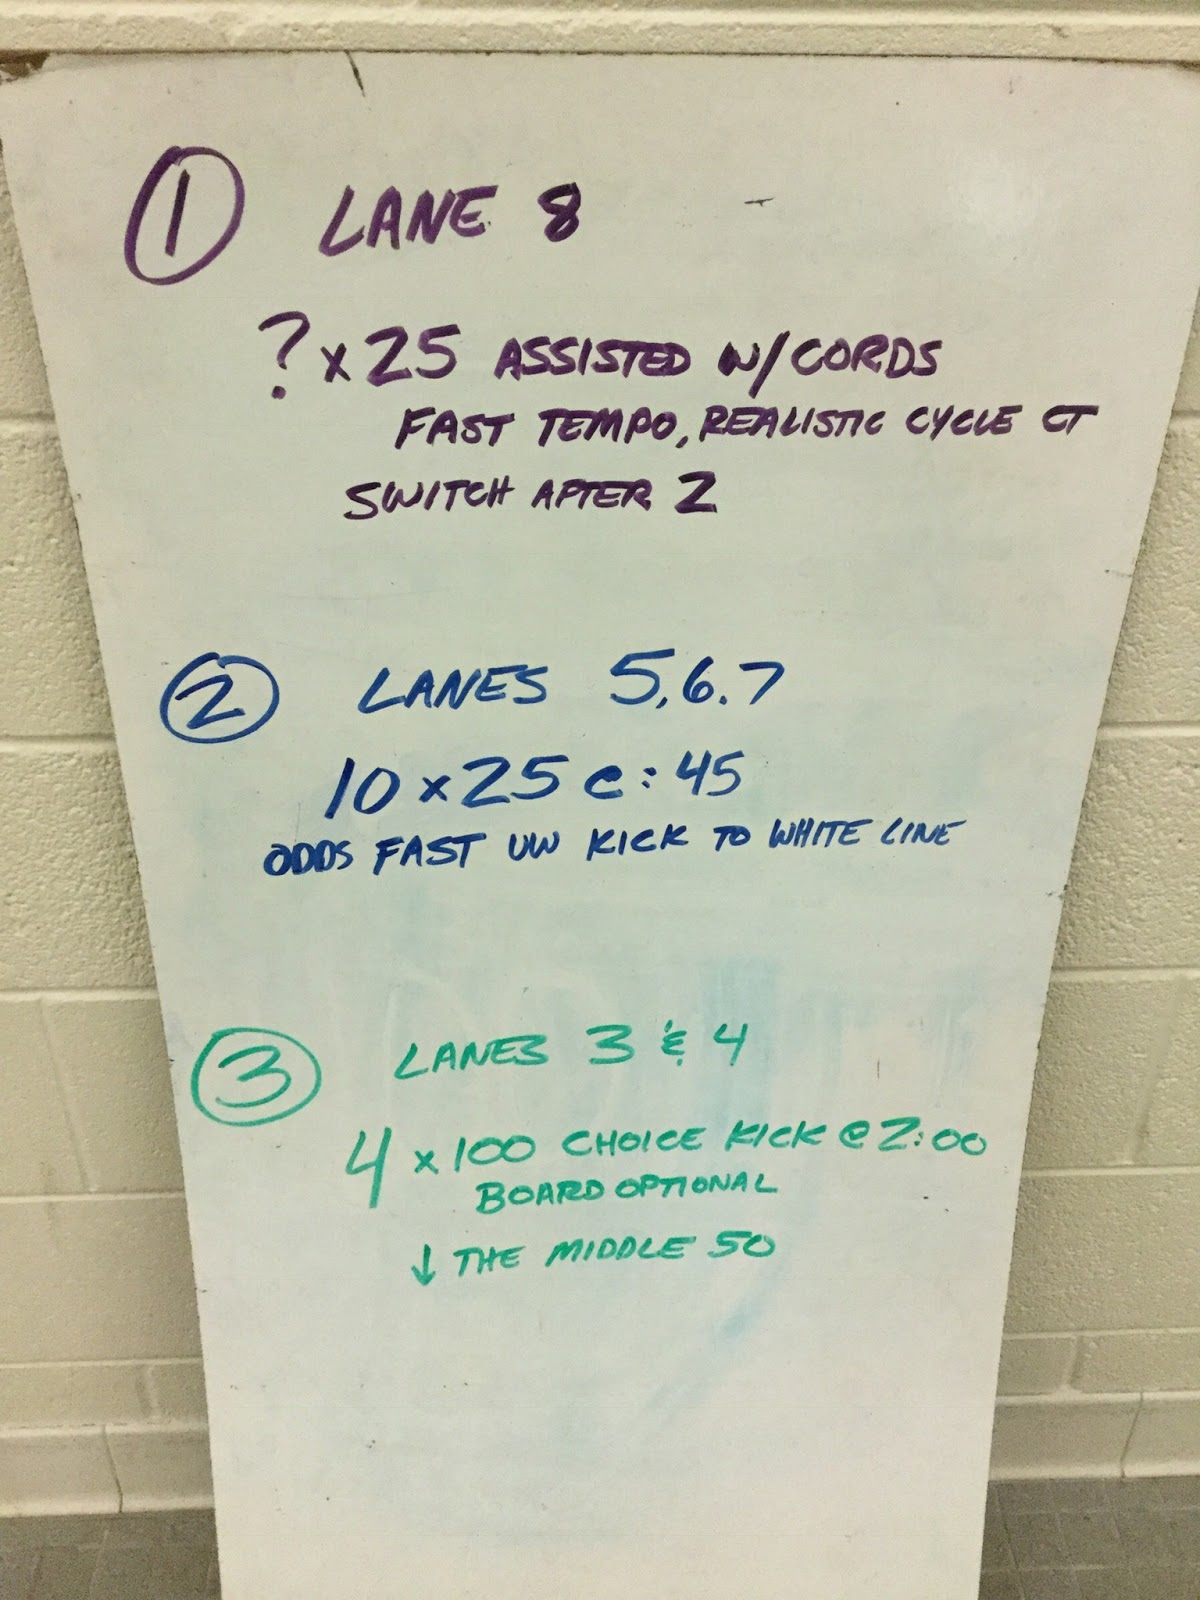 1 LANE 8
? x 25 ASSISTED W/CORDS
FAST TEMPO, REALISTIC CYCLE CT
SWITCH AFTER 2
2 LANES 5,6.7
10 x 25 @ :45
ODDS FAST UW KICK TO WHITE LINE
3 LANES 3 & 4
4 x 100 CHOICE KICK @ 2:00
BOARD OPTIONAL
↓ THE MIDDLE 50